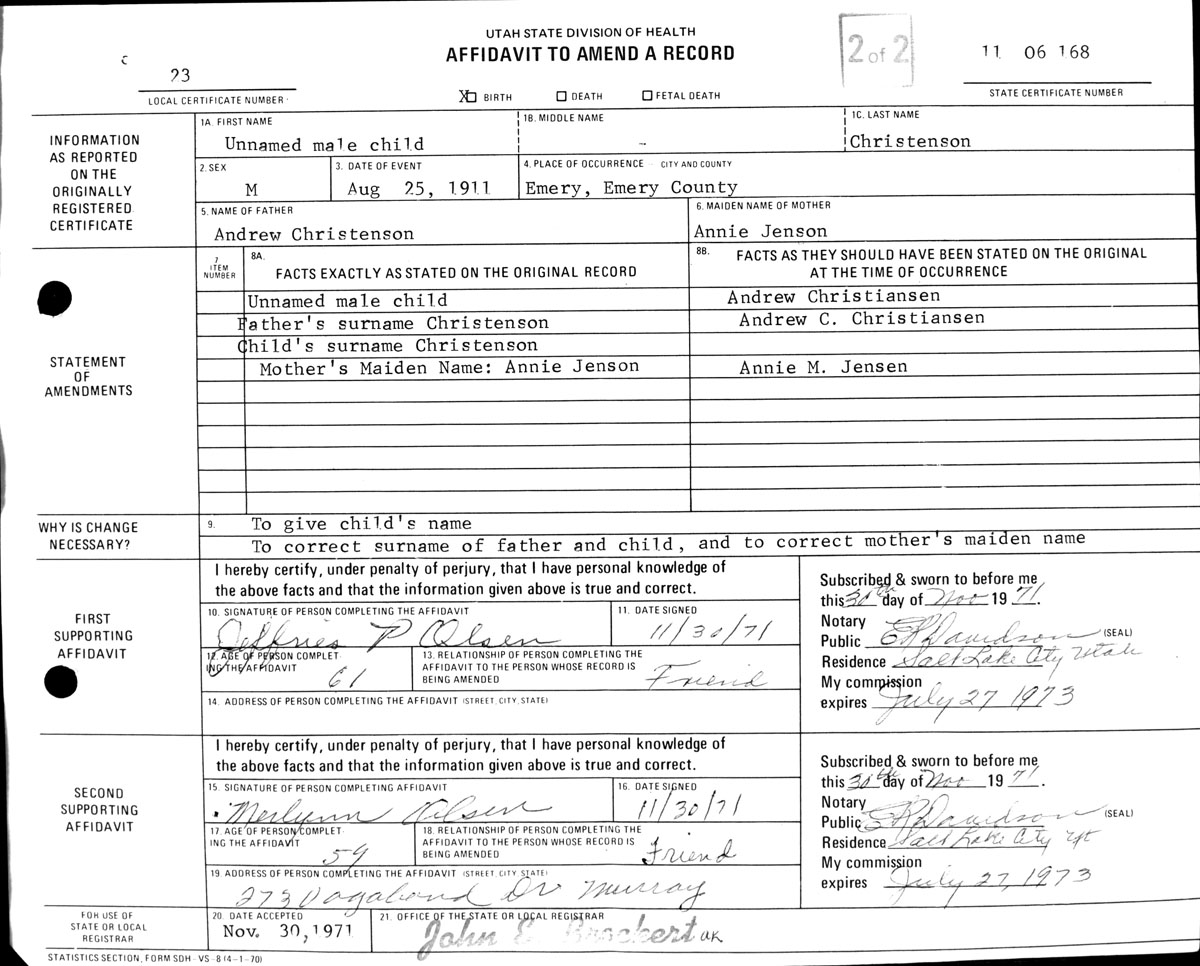 UTAH STATE DIVISION OF HEALTH
AFFIDAVIT TO AMEND A RECORD
2 of 2
11 06 168
23
LOCAL CERTIFICATE NUMBER
X BIRTH
DEATH
FETAL DEATH
STATE CERTIFICATE NUMBER
INFORMATION
AS REPORTED
ON THE
ORIGINALLY
REGISTERED
CERTIFICATE
1A. FIRST NAME
Unnamed male child
1B. MIDDLE NAME
-
1C. LAST NAME
Christenson
2. SEX
M
3. DATE OF EVENT
Aug 25, 1911
4. PLACE OF OCCURRENCE - CITY AND COUNTY
Emery, Emery County
5. NAME OF FATHER
Andrew Christenson
6. MAIDEN NAME OF MOTHER
Annie Jenson
STATEMENT
OF
AMENDMENTS
7
ITEM
NUMBER
8A.
FACTS EXACTLY AS STATED ON THE ORIGINAL RECORD
8B.
FACTS AS THEY SHOULD HAVE BEEN STATED ON THE ORIGINAL
AT THE TIME OF OCCURRENCE
Unnamed male child
Andrew Christiansen
Father's surname Christenson
Andrew C. Christiansen
Child's surname Christenson
Mother's Maiden Name: Annie Jenson
Annie M. Jensen
WHY IS CHANGE
NECESSARY?
9.
To give child's name
To correct surname of father and child, and to correct mother's maiden name
FIRST
SUPPORTING
AFFIDAVIT
I hereby certify, under penalty of perjury, that I have personal knowledge of
the above facts and that the information given above is true and correct.
10. SIGNATURE OF PERSON COMPLETING THE AFFIDAVIT
Jeffries P Olsen
11. DATE SIGNED
11/30/71
12. AGE OF PERSON COMPLET
ING THE AFFIDAVIT
61
13. RELATIONSHIP OF PERSON COMPLETING THE
AFFIDAVIT TO THE PERSON WHOSE RECORD IS
BEING AMENDED
Friend
14. ADDRESS OF PERSON COMPLETING THE AFFIDAVIT (STREET, CITY, STATE)
Subscribed & sworn to before me
this 30th day of Nov 1971.
Notary
Public E R Davidson (SEAL)
Residence Salt Lake City Utah
My commission
expires July 27 1973
SECOND
SUPPORTING
AFFIDAVIT
I hereby certify, under penalty of perjury, that I have personal knowledge of
the above facts and that the information given above is true and correct.
15. SIGNATURE OF PERSON COMPLETING AFFIDAVIT
Merlynn Olsen
16. DATE SIGNED
11/30/71
17. AGE OF PERSON COMPLET
ING THE AFFIDAVIT
59
18. RELATIONSHIP OF PERSON COMPLETING THE
AFFIDAVIT TO THE PERSON WHOSE RECORD IS
BEING AMENDED
Friend
19. ADDRESS OF PERSON COMPLETING THE AFFIDAVIT (STREET, CITY, STATE)
273 Vagabond Dr Murray
Subscribed & sworn to before me
this 30th day of Nov 1971.
Notary
Public E R Davidson (SEAL)
Residence Salt Lake City Ut
My commission
expires July 27, 1973
FOR USE OF
STATE OR LOCAL
REGISTRAR
20. DATE ACCEPTED
Nov. 30, 1971
21. OFFICE OF THE STATE OR LOCAL REGISTRAR
John E Brockert
STATISTICS SECTION, FORM SDH-VS-8 (4-1-70)